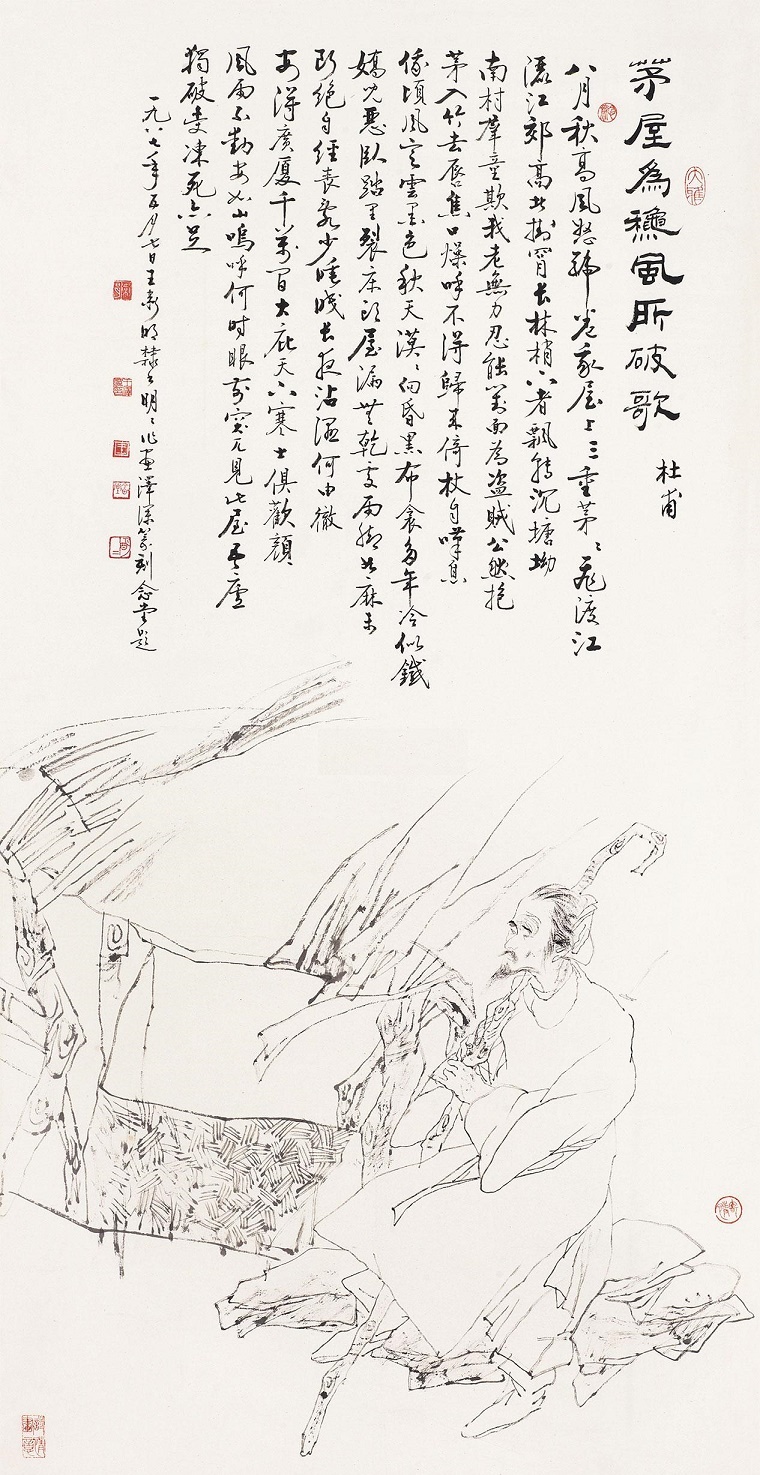 茅屋為龝風所破歌
杜甫
八月秋高風怒號卷我屋上三重茅〻飛渡江
灑江郊高者掛罥長林梢下者飄轉沉塘坳
南村羣童欺我老無力忍能對面為盗賊公然抱
茅入竹去唇焦口燥呼不得歸來倚杖自嘆息
俄頃風定雲墨色秋天漠〻向昏黑布衾多年冷似鐵
嬌兒惡臥踏里裂床頭屋漏無乾處雨脚如麻未
斷絕自經喪亂少睡眠長夜沾濕何由徹
安得廣厦千萬間大庇天下寒士俱歡顏
風雨不動安如山嗚呼何時眼前突兀見此屋吾廬
獨破受凍死亦足
一九八七年五月七日王新明隸之明〻作畫澤深篆刻念堂題
大雅